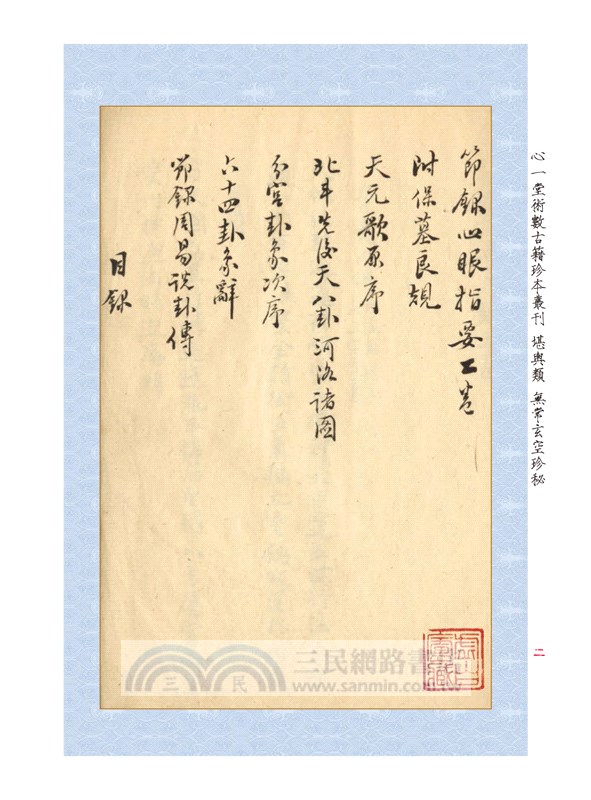 節錄心眼指要工卷
附保墓良規
天元歌原序
北斗先後天八卦河洛諸圖
分宮卦象次序
六十四卦象辭
節錄周易說卦傳
目錄
心一堂術數古籍珍本叢刊 堪輿類 無常玄空珍秘
二
三民
三民網路書
www.sanmin.com